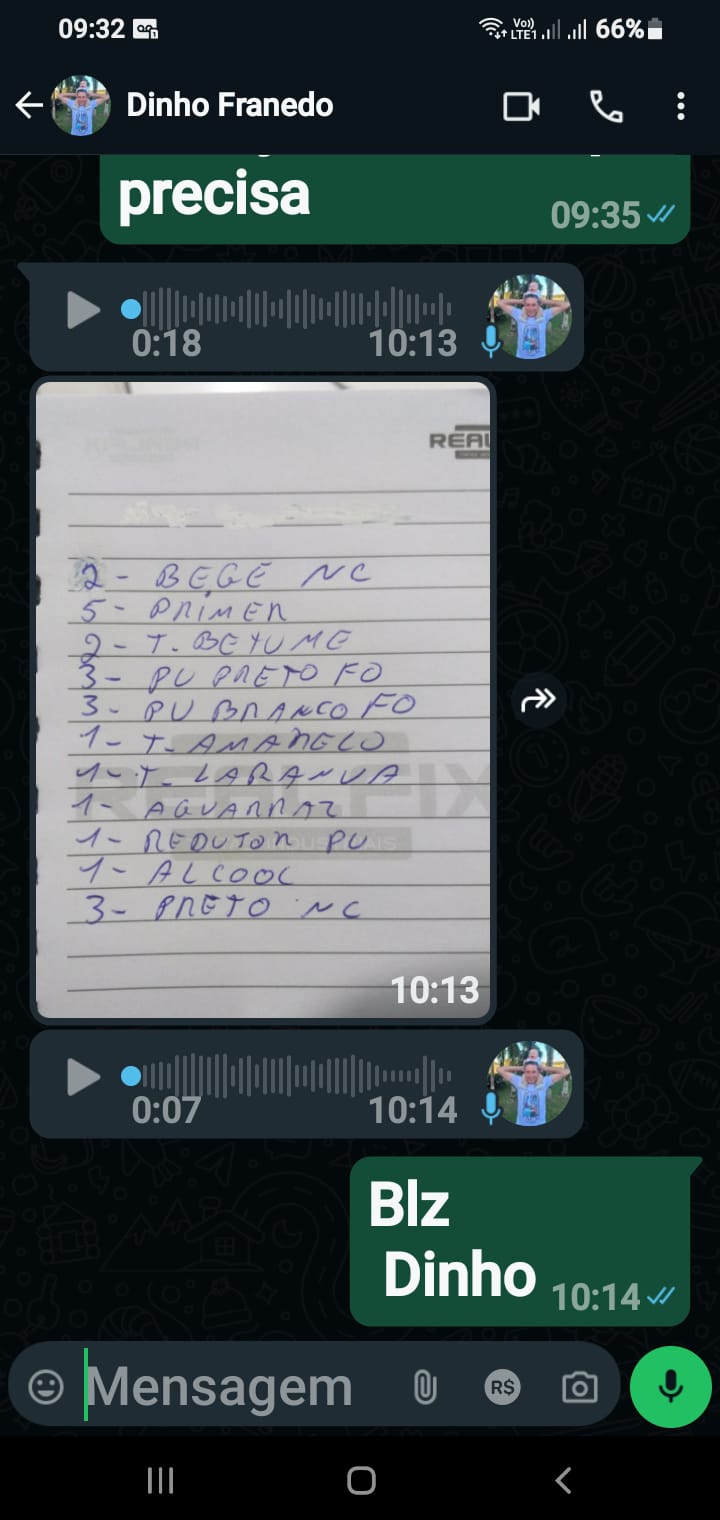 09:32
Vo)) LTE1 66%
Dinho Franedo
precisa
09:35
0:18 10:13
REAL
2 - BEGE NC
5 - PRIMER
2 - T. BETUME
3 - PU PRETO FO
3 - PU BRANCO FO
1 - T. AMARELO
1 - T. LARANJA
1 - AGUARRAZ
1 - REDUTOR PU
1 - ALCOOL
3 - PRETO NC
REALFIX
10:13
0:07 10:14
Blz
Dinho
10:14
Mensagem
R$